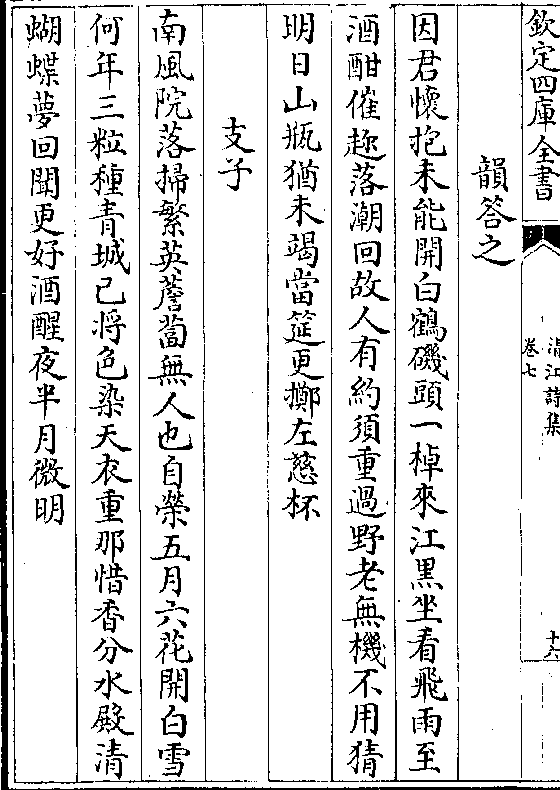 欽定四庫全書
清江詩集
卷七
十六
韻答之
因君懷抱未能開白鶴磯頭一棹來江黑坐看飛雨至
酒酣催趂落潮回故人有約須重過野老無機不用猜
明日山瓶猶未竭當筵更擲左慈杯
支子
南風院落掃繁英薝蔔無人也自榮五月六花開白雪
何年三粒種青城已将色染天衣重那惜香分水殿清
蝴蝶夢回聞更好酒醒夜半月微明